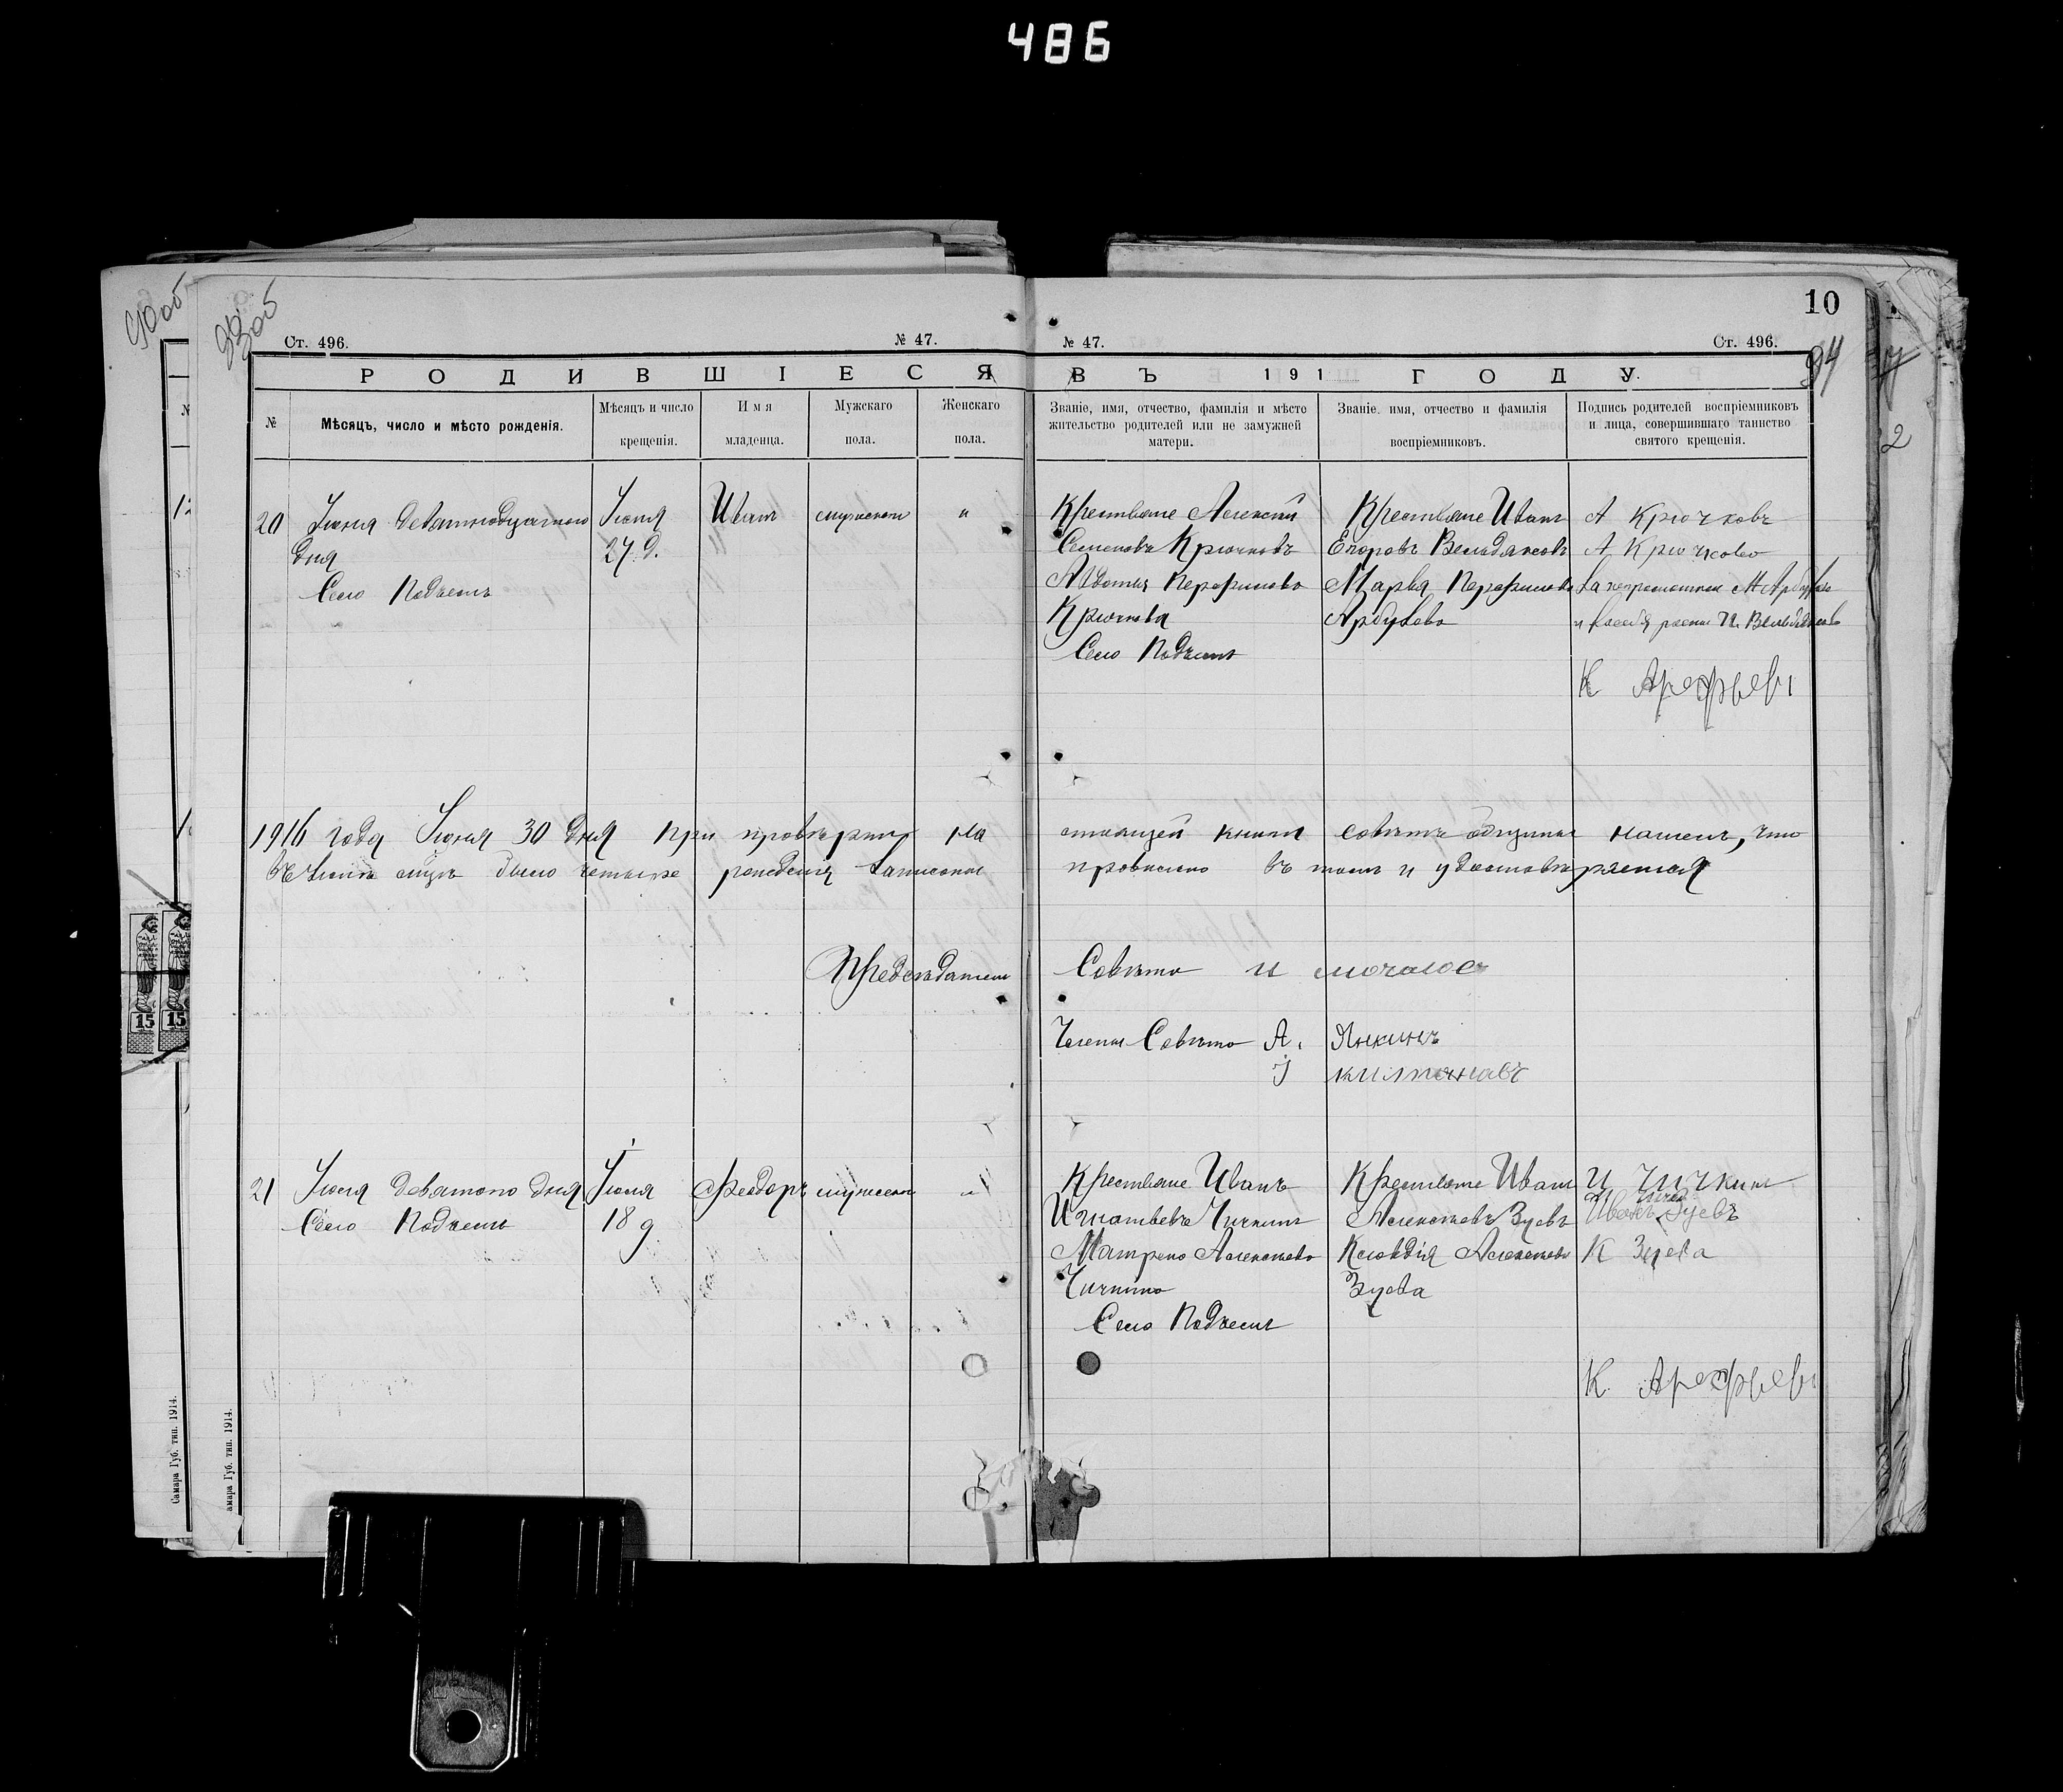 486
10
90об
93об
94
Ст. 496.
№ 47.
№ 47.
Ст. 496.
РОДИВШІЕСЯ
ВЪ 191 ГОДУ.
№
Мѣсяцъ, число и мѣсто рожденія.
Мѣсяцъ и число крещенія.
Имя младенца.
Мужскаго пола.
Женскаго пола.
Званіе, имя, отчество, фамилія и мѣсто
жительство родителей или не замужней
матери.
Званіе. имя, отчество и фамилія
воспріемниковъ.
Подпись родителей воспріемниковъ
и лица, совершившаго таинство
святого крещенія.
20
Іюня девятнодцатого
дня
Село Подъемъ
Іюня
27 д.
Иванъ
мужскои
"
Крестьяне Алексѣй
Семеновъ Крючковъ
Авдотья Перфилова
Крючкова
Село Подъемъ
Крестьяне Иванъ
Егоровъ Вельдяксовъ
Марья Перфилова
Арбузова
А Крючковъ
А Крючково
К Арефьевъ
1916 года Іюня 30 дня При провѣркѣ на
стоящей книги совѣтъ общины нашелъ, что
въ Іюнѣ было четыре рожденія записаны
правильно въ томъ и удостовѣряется
Предсѣдатель
Совѣта И
Члены Совѣта А. Янкинъ
21
Іюля девятого дня
Село Подъемъ
Іюля
18 д
Феодоръ
мужскои
"
Крестьяне Иванъ
Игнатьевъ Чичкинъ
Матрена Алексѣева
Чичкина
Село Подъемъ
Крестьяне Иванъ
Алексѣевъ Зуевъ
Клавдія Алексѣева
Зуева
И Чичкинъ
Иванъ Зуевъ
К Зуева
К Арефьевъ
2
15
15
Самара Губ. тип. 1914.
амара Губ. тип. 1914.